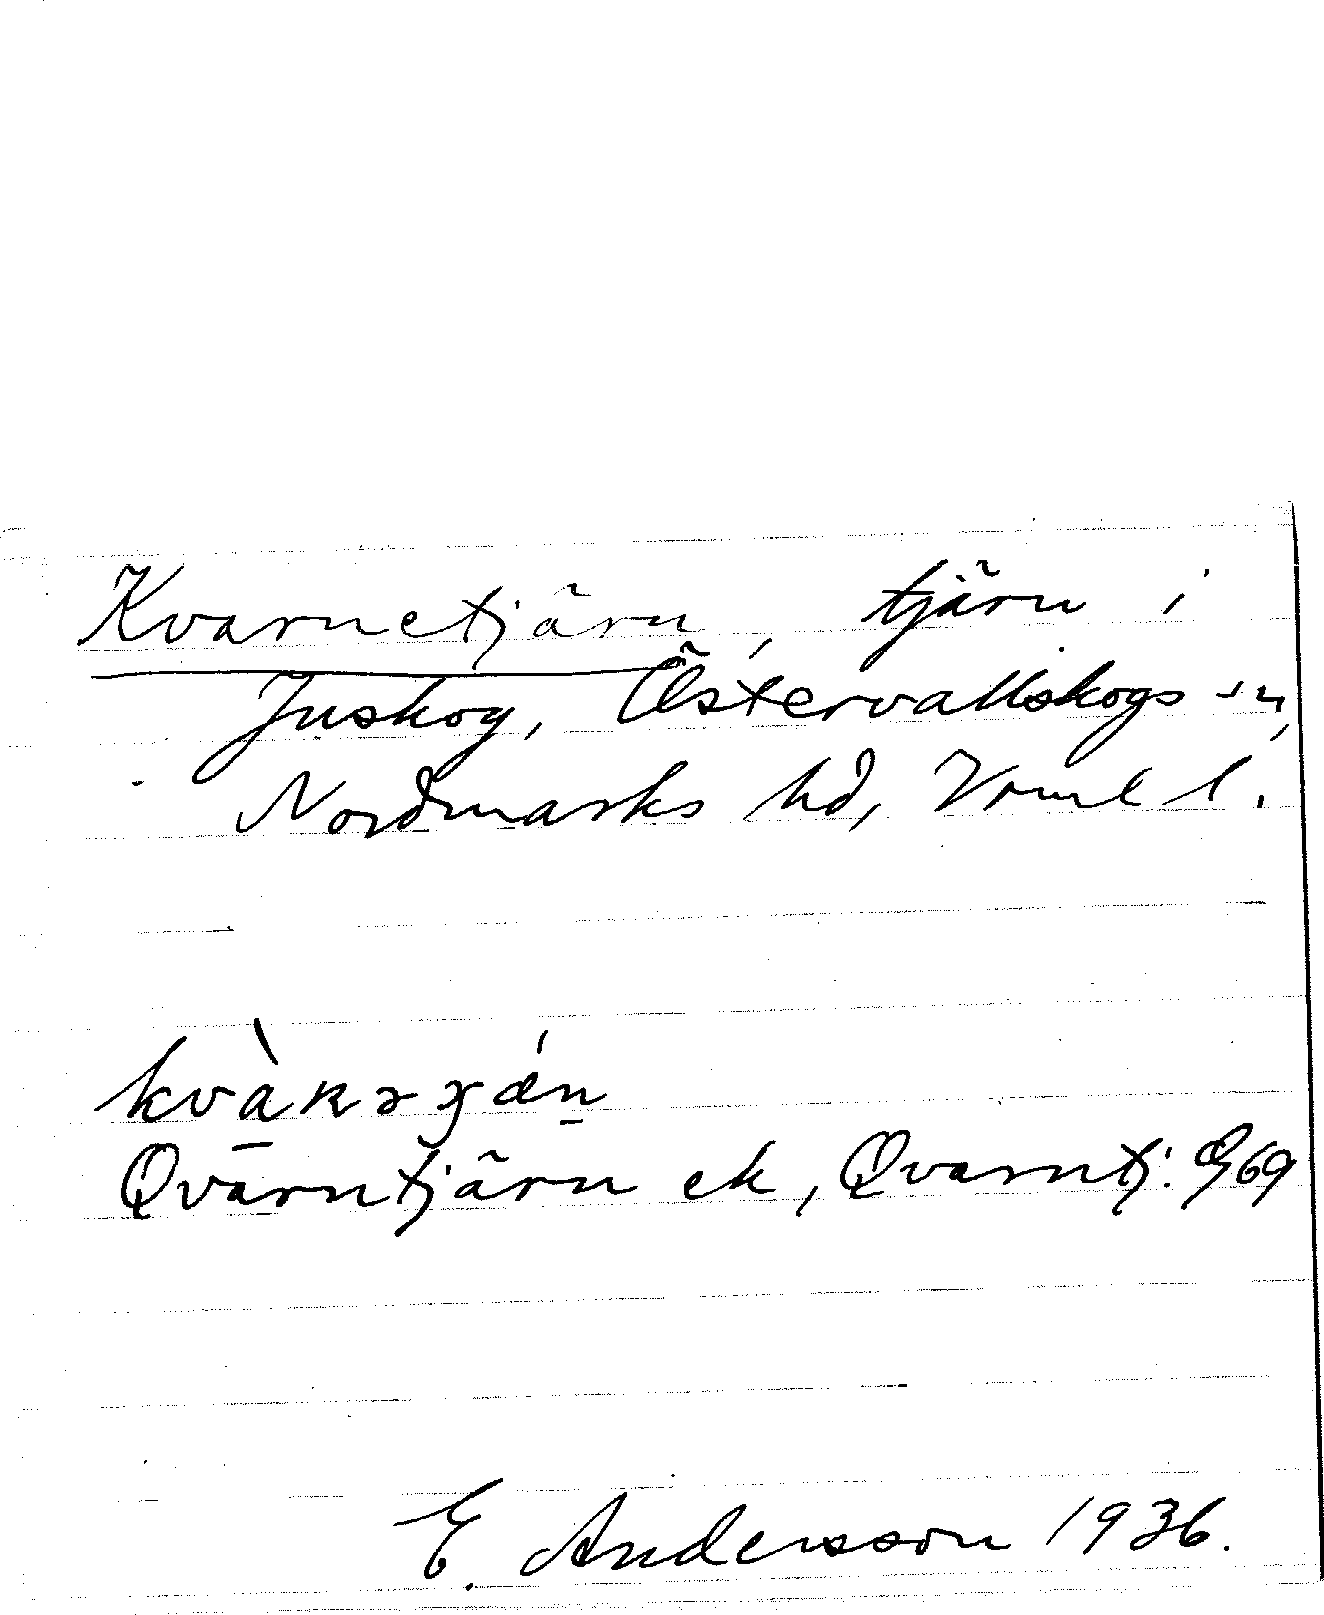 Kvarnetjärn, tjärn i
Juskog, Östervallskogs sn,
Nordmarks hd, Vrml l.
Qvarntjärn ek, Qvarntj. G69
E. Andersson 1936.